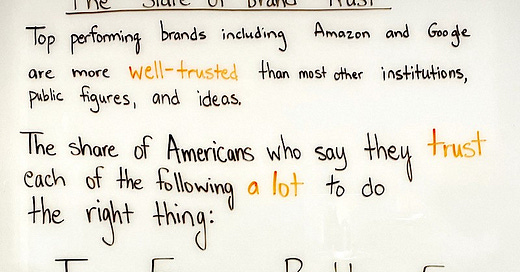 The State of Brand Trust
Top performing brands including Amazon and Google
are more well-trusted than most other institutions,
public figures, and ideas.
The share of Americans who say they trust
each of the following a lot to do
the right thing: